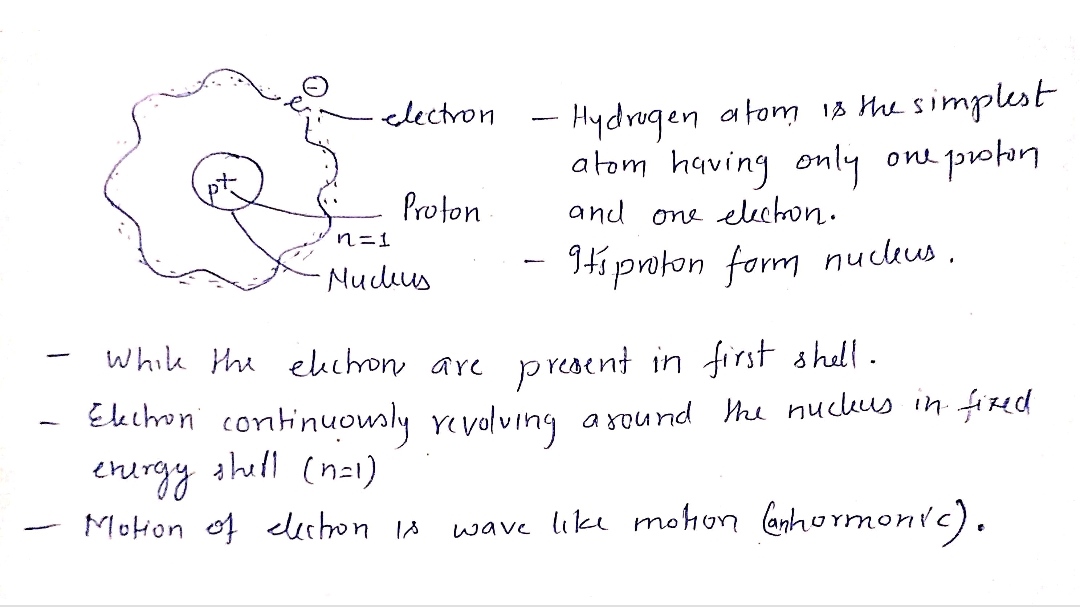 ⊖
e
electron
p+
Proton
n=1
Nucleus
- Hydrogen atom is the simplest
atom having only one proton
and one electron.
- It's proton form nucleus.
- While the electron are present in first shell.
- Electron continuously revolving around the nucleus in fixed
energy shell (n=1)
- Motion of electron is wave like motion (anhormonic).